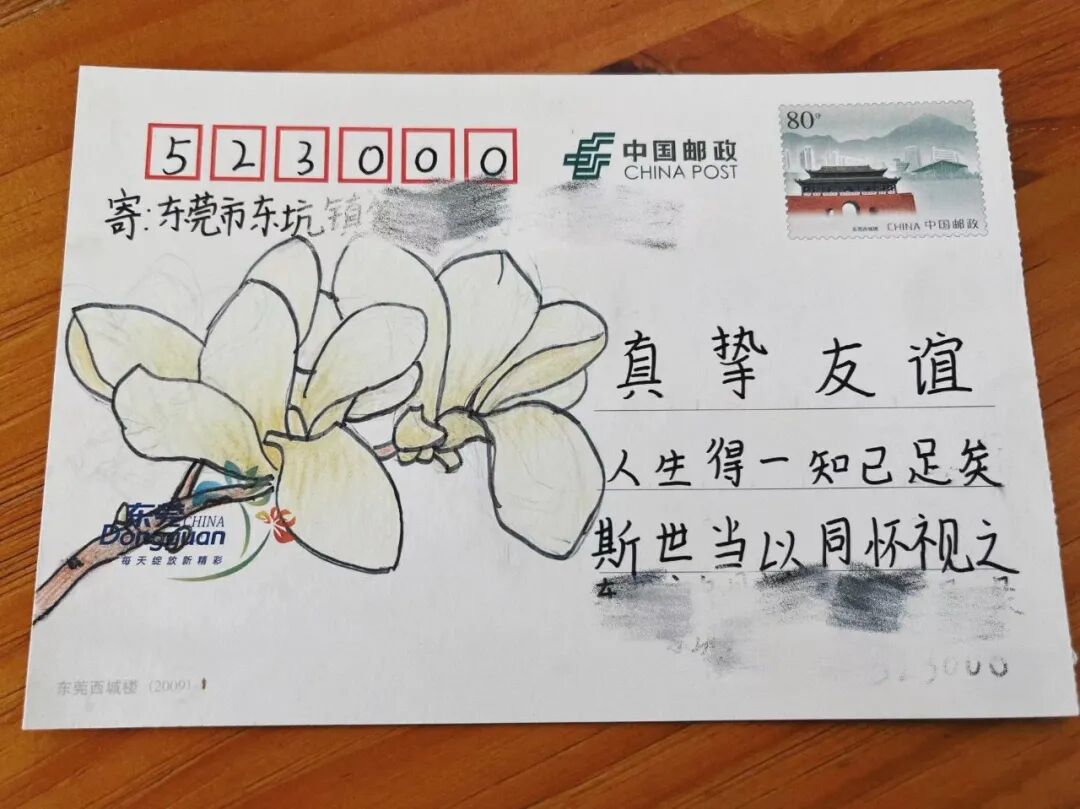 523000
中国邮政
CHINA POST
80分
东莞西城楼
CHINA 中国邮政
寄:东莞市东坑镇
真挚友谊
人生得一知己足矣
斯世当以同怀视之
东莞CHINA
Dongguan
每天绽放新精彩
523000
东莞西城楼 (2009)